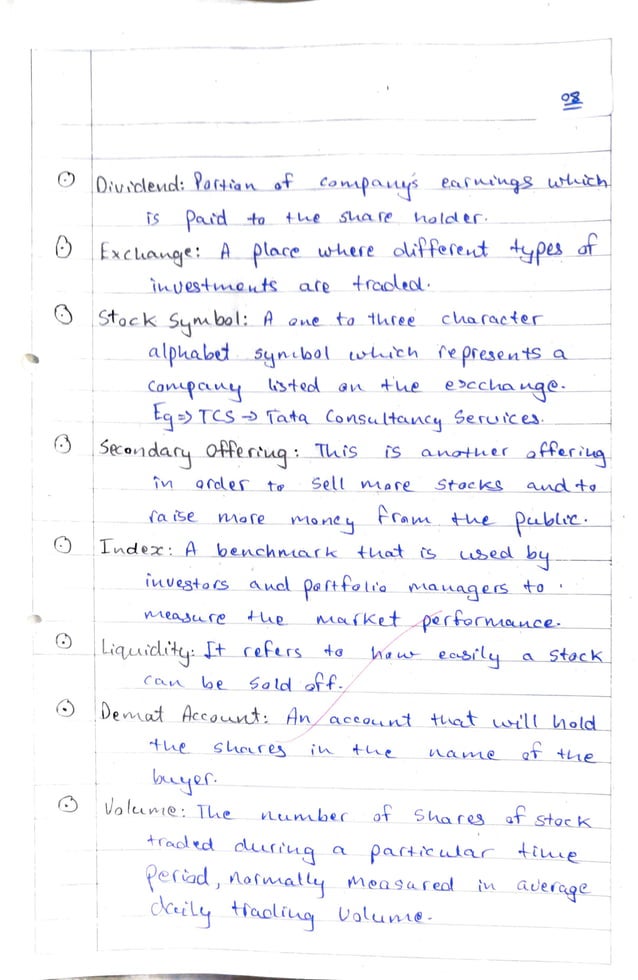 08
Dividend: Portion of company's earnings which
is paid to the share holder.
Exchange: A place where different types of
investments are traded.
Stock Symbol: A one to three character
alphabet symbol which represents a
company listed on the exchange.
Eg => TCS → Tata Consultancy Services.
Secondary Offering: This is another offering
in order to sell more stocks and to
raise more money from the public.
Index: A benchmark that is used by
investors and portfolio managers to
measure the market performance.
Liquidity: It refers to how easily a stock
can be sold off.
Demat Account: An account that will hold
the shares in the name of the
buyer.
Volume: The number of shares of stock
traded during a particular time
period, normally measured in average
daily trading volume.